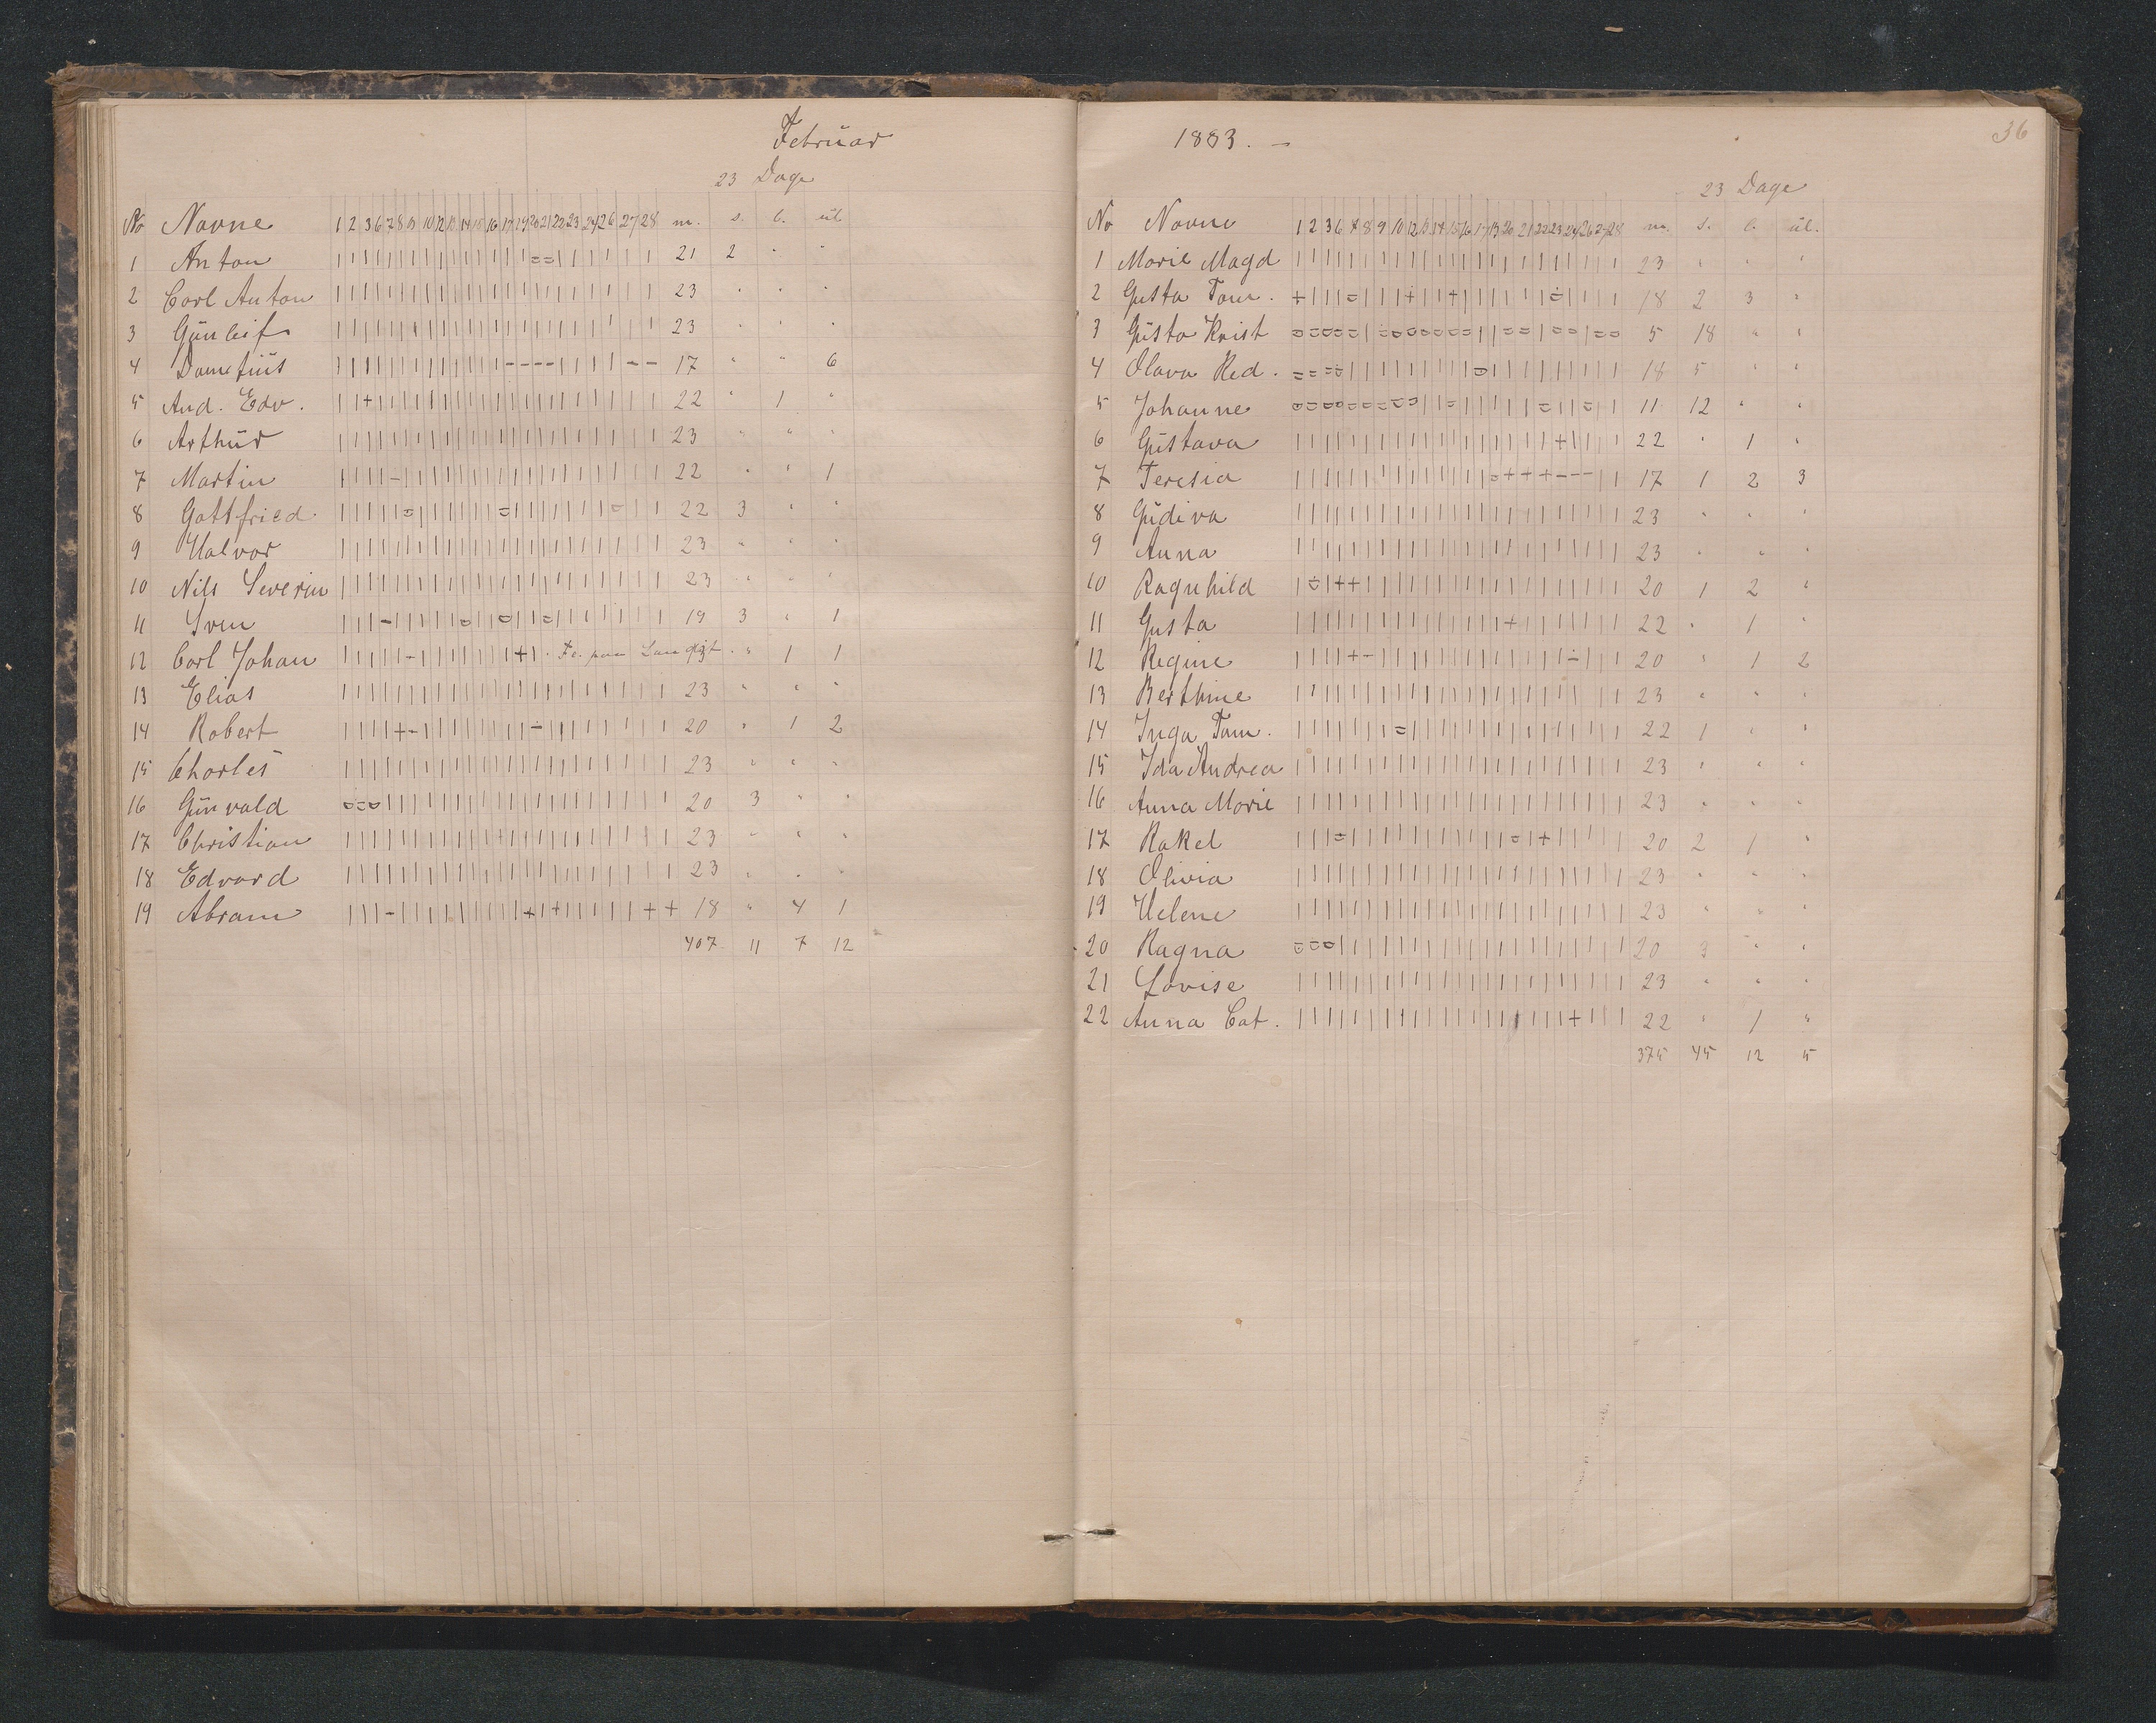 Februar
23 Dage
No Navne 1 2 3 6 7 8 9 10 12 13 14 15 16 17 19 20 21 22 23 24 26 27 28 m. s. l. ul
1 Anton | | | | | | | | | | | | | | = = | | | | | | | 21 2 " "
2 Carl Anton | | | | | | | | | | | | | | | | | | | | | | | 23 " " "
3 Günleif | | | | | | | | | | | | | | | | | | | | | | | 23 " " "
4 Dometius | | | | | | | | | | | | - - - - | | | | | - - 17 " " 6
5 And. Edv. | | + | | | | | | | | | | | | | | | | | | | | 22 " 1 "
6 Arthür | | | | | | | | | | | | | | | | | | | | | | | 23 " " "
7 Martin | | | | - | | | | | | | | | | | | | | | | | | 22 " " 1
8 Gottfried | | | | | = | | | | | | = | | | | | | | = | | | 22 3 " "
9 Halvor | | | | | | | | | | | | | | | | | | | | | | | 23 " " "
10 Nils Severin | | | | | | | | | | | | | | | | | | | | | | | 23 " " "
11 Sven | | | - | | | | | = | | = | | = | | | | | | | | 19 3 " 1
12 Carl Johan | | | | | - | | | | | | | + | . " 1 1
13 Elias | | | | | | | | | | | | | | | | | | | | | | | 23 " " "
14 Robert | | | | + - | | | | | | | - | | | | | | | | | 20 " 1 2
15 Charles | | | | | | | | | | | | | | | | | | | | | | | 23 " " "
16 Günvald = = = | | | | | | | | | | | | | | | | | | | | 20 3 " "
17 Christian | | | | | | | | | | | | | | | | | | | | | | | 23 " " "
18 Edvard | | | | | | | | | | | | | | | | | | | | | | | 23 " " "
19 Abram | | | - | | | | | | | | | + | + | | | | | + + 18 " 4 1
407 11 7 12
1883. -
36
23 Dage
No Navne 1 2 3 6 7 8 9 10 12 13 14 15 16 17 19 20 21 22 23 24 26 27 28 m. s. l. ul.
1 Marie Magd | | | | | | | | | | | | | | | | | | | | | | | 23 " " "
2 Gusta Tom. + | | | = | | | + | | + | | | | | | = | | | | 18 2 3 "
3 Güsta Krist = = = = = | = = = = = = = | | = = | = = | = = 5 18 " "
4 Olava Red. = = = = | | | | | | | | | = | | | | | | | | | 18 5 " "
5 Johanne = = = = = = = = = | | = | | | | | = | | = | | 11 12 " "
6 Güstava | | | | | | | | | | | | | | | | | | + | | | | 22 " 1 "
7 Teresia | | | | | | | | | | | | | | = + + + - - - | | 17 1 2 3
8 Güdiva | | | | | | | | | | | | | | | | | | | | | | | 23 " " "
9 Anna | | | | | | | | | | | | | | | | | | | | | | | 23 " " "
10 Ragnhild | = | + + | | | | | | | | | | | | | | | | | | 20 1 2 "
11 Gusta | | | | | | | | | | | | | | | + | | | | | | | 22 " 1 "
12 Regine | | | | + - | | | | | | | | | | | | | - | | | 20 " 1 2
13 Berthine | | | | | | | | | | | | | | | | | | | | | | | 23 " " "
14 Inga Tom. | | | | | | | = | | | | | | | | | | | | | | | 22 1 " "
15 Ida Andrea | | | | | | | | | | | | | | | | | | | | | | | 23 " " "
16 Anna Marie | | | | | | | | | | | | | | | | | | | | | | | 23 " " "
17 Rakel | | | = | | | | | | | | | | | = | + | | | | | 20 2 1 "
18 Olivia | | | | | | | | | | | | | | | | | | | | | | | 23 " " "
19 Helene | | | | | | | | | | | | | | | | | | | | | | | 23 " " "
20 Ragna = = = | | | | | | | | | | | | | | | | | | | | 20 3 " "
21 Lovise | | | | | | | | | | | | | | | | | | | | | | | 23 " " "
22 Anna Cat. | | | | | | | | | | | | | | | | | | | + | | | 22 " 1 "
375 45 12 5